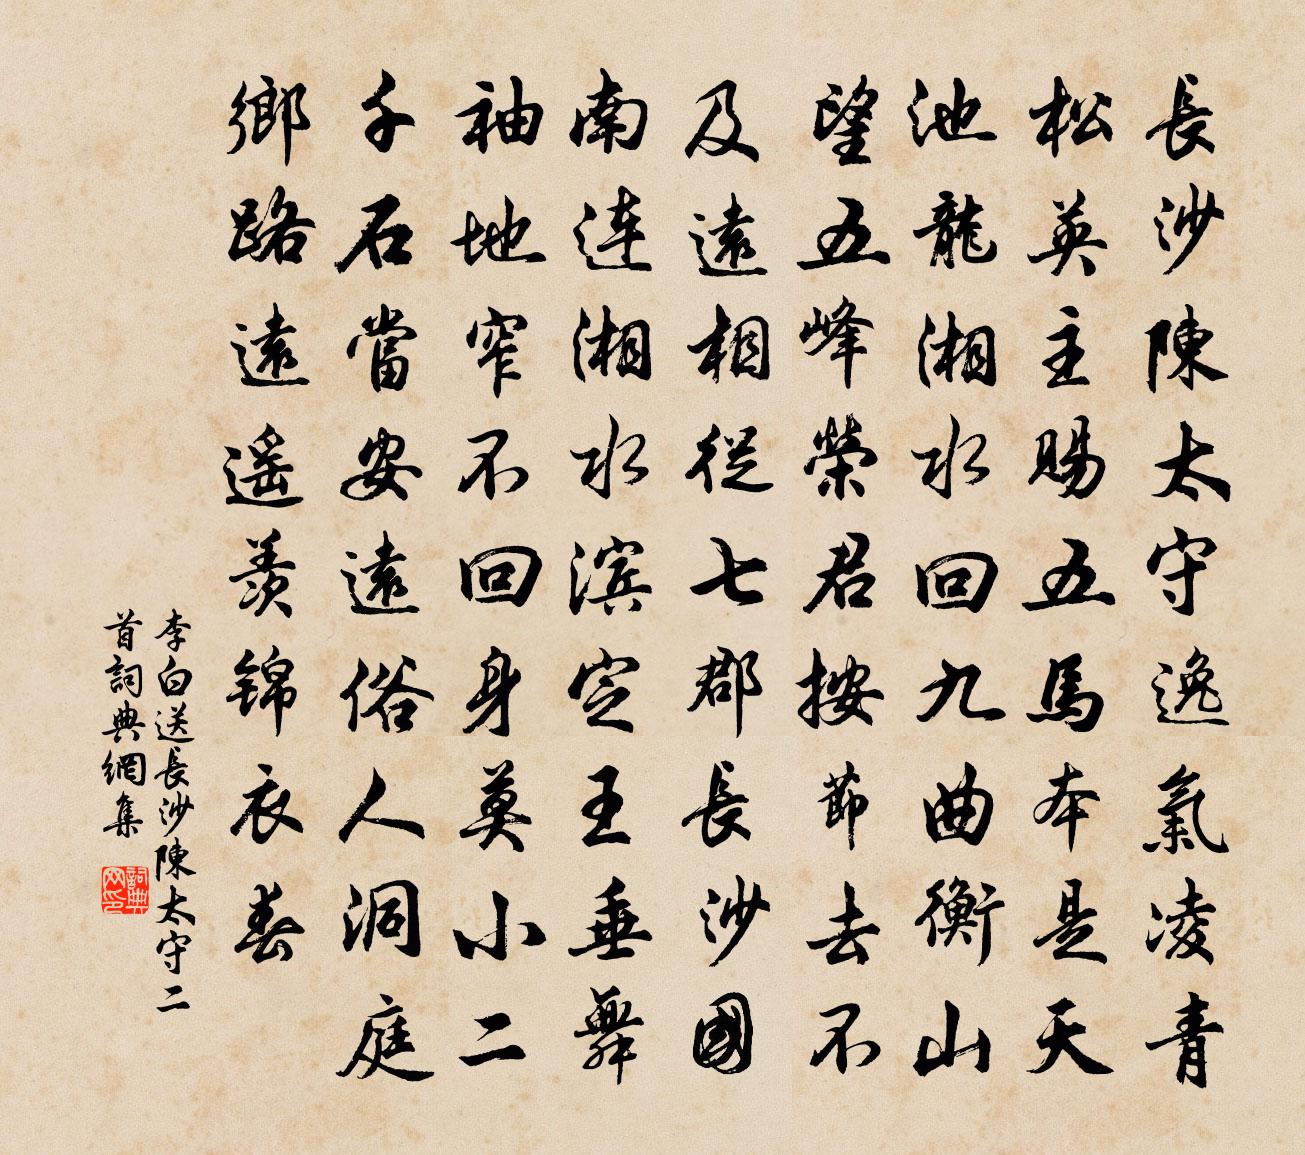 長沙陳太守逸氣凌青
松英主賜五馬本是天
池龍湘水回九曲衡山
望五峰榮君按節去不
及遠相從七郡長沙國
南連湘水滨定王垂舞
袖地窄不回身莫小二
千石當安遠俗人洞庭
鄉路遠遥羨錦衣春
李白送長沙陳太守二
首詞典網集
詞典网印